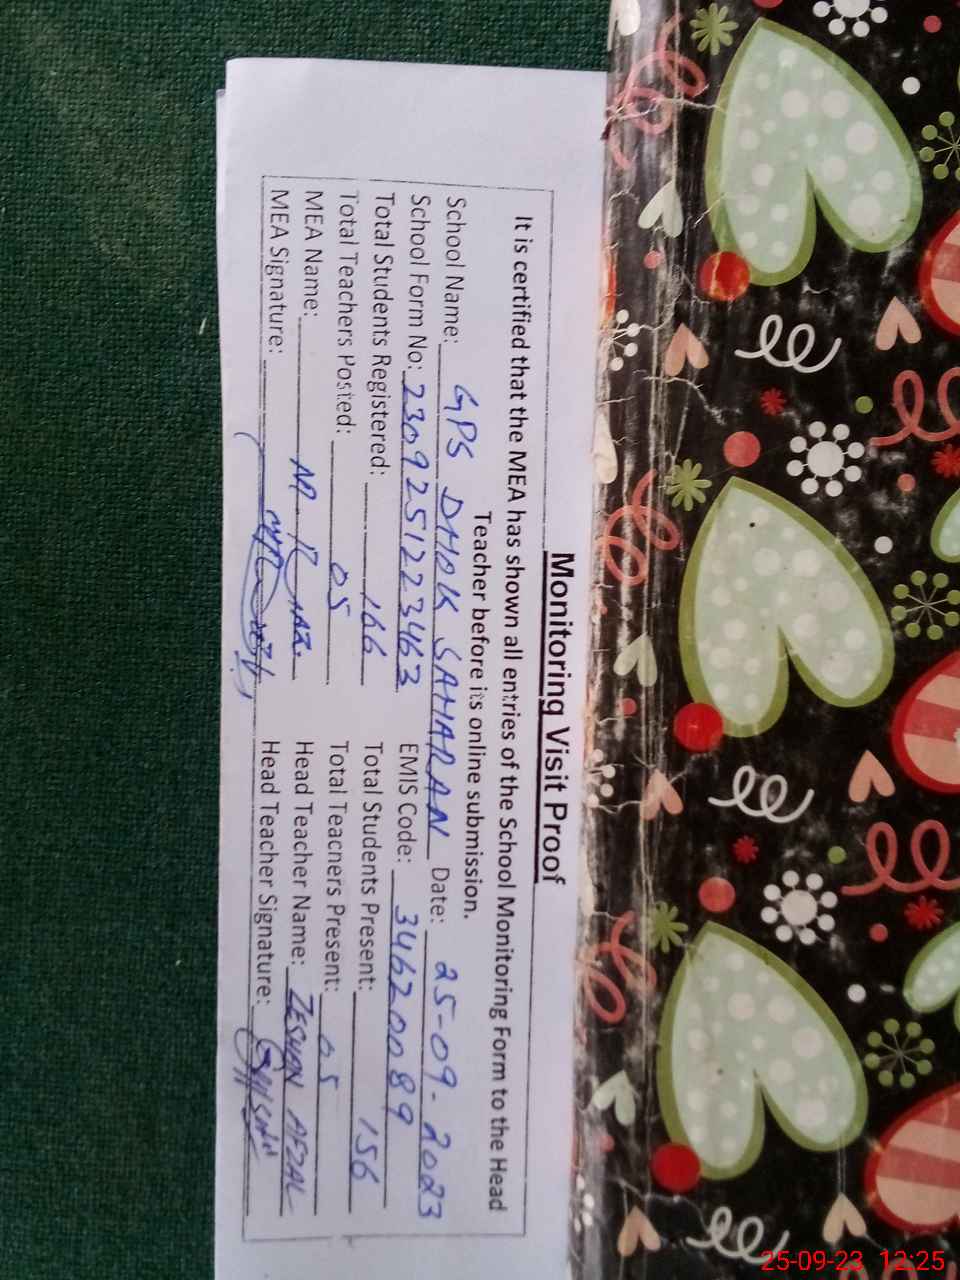 Monitoring Visit Proof
It is certified that the MEA has shown all entries of the School Monitoring Form to the Head
Teacher before its online submission.
School Name: GPS DHOK SAHARAN Date: 25-09-2023
School Form No: 2309251223463 EMIS Code: 34620089
Total Students Registered: 166 Total Students Present: 156
Total Teachers Posted: 05 Total Teachers Present: 05
MEA Name: Head Teacher Name: ZESHAN AFZAL
MEA Signature: Head Teacher Signature:
25-09-23 12:25